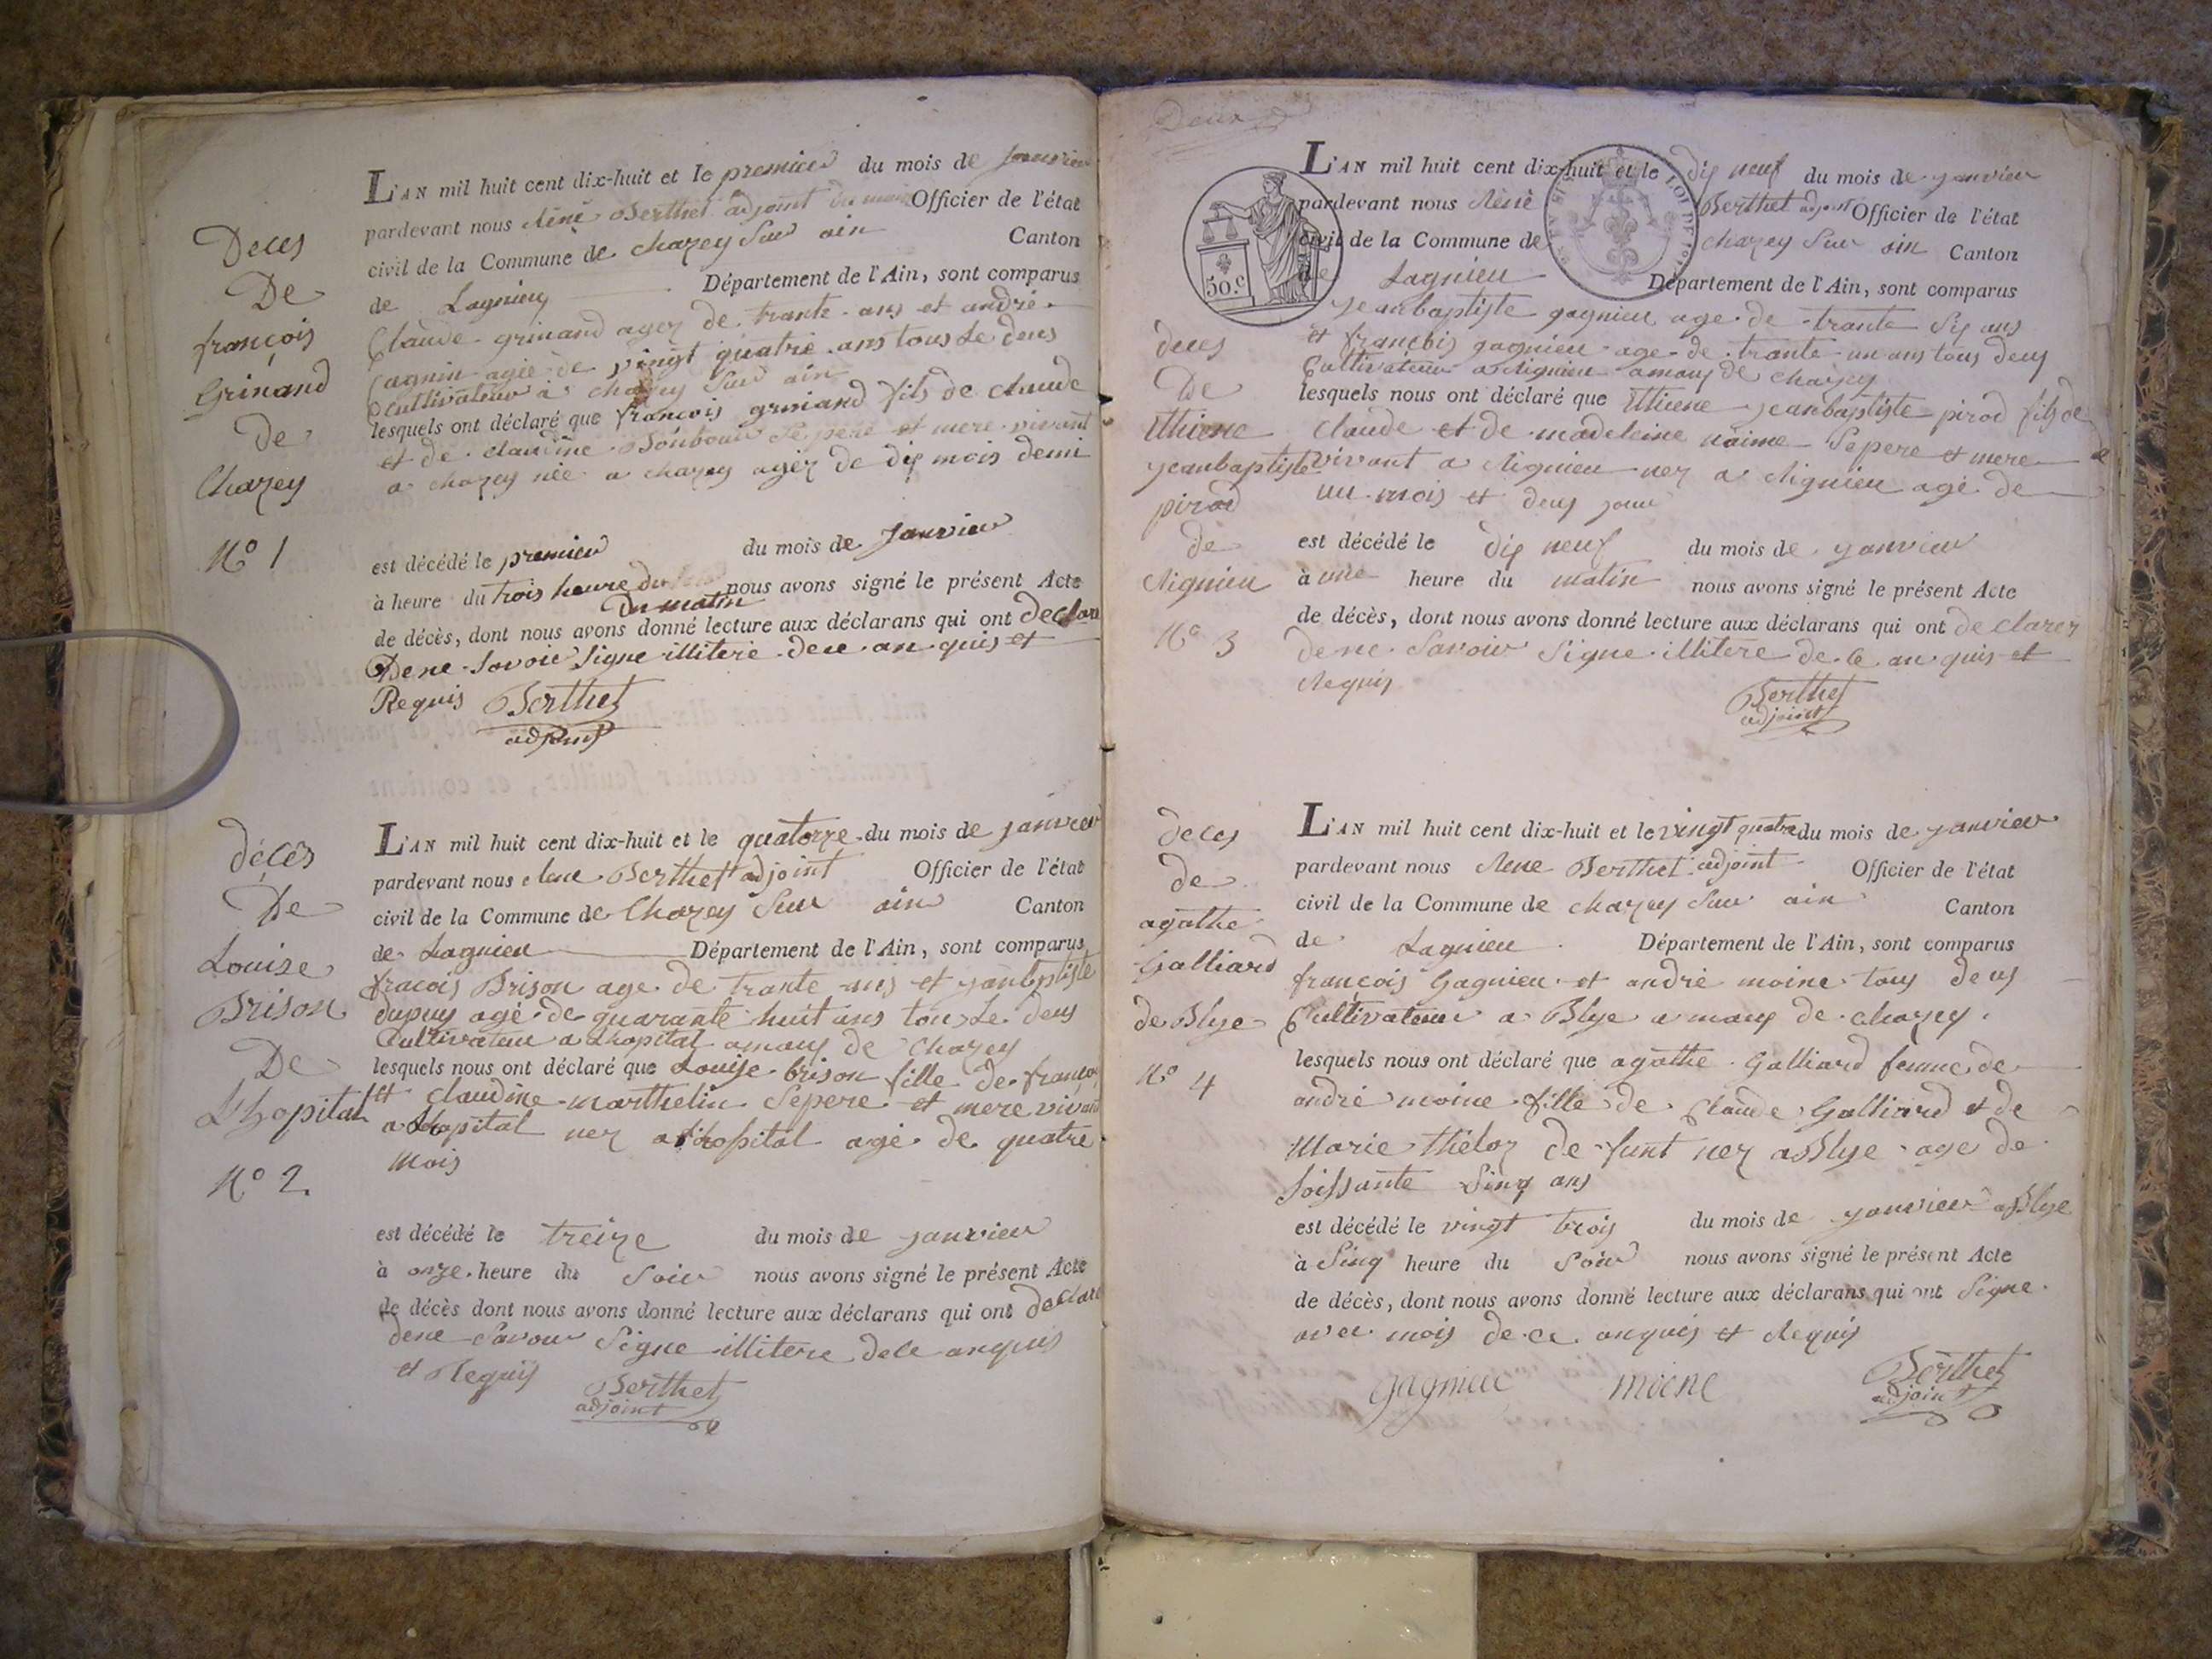 Deces
De
françois
Grinand
de
Chazey
N° 1
L'AN mil huit cent dix-huit et le premier du mois de Janvier
pardevant nous Réné Berthet adjoint du maire Officier de l'état
civil de la Commune de chazey Sur ain Canton
de Lagnieu Département de l'Ain, sont comparus
Claude grinand agez de trante ans et andré
agée de vingt quatre ans tous Le deus
Cultivateur à chazey Sur ain
lesquels ont déclaré que françois grinand fils de claude
et de claudine Se pere et mere vivant
a chazey née a chazey agéz de dix mois demi
est décédé le premier du mois de Janvier
à heure du trois heure du nous avons signé le présent Acte
Du matin
de décès, dont nous avons donné lecture aux déclarans qui ont declare
De ne Savoir Signe illitere de ce an quis et
Requis Berthet
adjoint
décès
De
Louise
Brison
De
L'hopital
N° 2.
L'AN mil huit cent dix-huit et le quatorze du mois de janvier
pardevant nous Rene Berthet adjoint Officier de l'état
civil de la Commune de Chazey Sur ain Canton
de Lagnieu Département de l'Ain, sont comparus
fracois Brison age de trante ans et
dupuy agé de quarante huit ans tous Le deus
Cultivateur a Lhopital amaux de Chazey
lesquels nous ont déclaré que Louise brison fille de francois
et claudine marthelin Sepere et mere vivant
a Lhopital nez a Lhopital agé de quatre
Mois
est décédé le treize du mois de janvier
à onze heure du Soir nous avons signé le présent Acte
de décès dont nous avons donné lecture aux déclarans qui ont declare
dene Savoir Signe illitere dece anquis
et Requis Berthet
adjoint
Deux
50.c
deces
De
Ethiene
jeanbaptiste
pirod
de
Rignieu
N° 3
L'AN mil huit cent dix-huit et le dix neuf du mois de janvier
pardevant nous Réné Berthet adjoint Officier de l'état
civil de la Commune de chazey Sur ain Canton
de Lagnieu Département de l'Ain, sont comparus
jeanbaptiste gagnieu age de trante Six ans
et françois gagnieu age de trante un ans tous deux
Cultivateur a Rignieu amaux de chazey
lesquels nous ont déclaré que Ethiene jeanbaptiste pirod fils de
claude et de madeleine naime Sepere et mere
vivant a Rignieu nez a Rignieu agé de
un mois et deux jour
est décédé le dix neuf du mois de janvier
à une heure du matin nous avons signé le présent Acte
de décès, dont nous avons donné lecture aux déclarans qui ont declarez
dene Savoir Signe illitere de ce an quis et
Requis
Berthet
adjoint
deces
de
agathe
Galliard
de Blye
N° 4
L'AN mil huit cent dix-huit et le vingt quatre du mois de janvier
pardevant nous Rene Berthet adjoint Officier de l'état
civil de la Commune de chazey Sur ain Canton
de Lagnieu Département de l'Ain, sont comparus
françois Gagnieu et andré moine tous deus
Cultivateur a Blye amaux de chazey
lesquels nous ont déclaré que agathe Galliard femme de
andré moine fille de Claude Galliard et de
Marie de funt nez a Blye age de
Soissante Sinq ans
est décédé le vingt trois du mois de janvier a Blye
à Sinq heure du Soir nous avons signé le présent Acte
de décès, dont nous avons donné lecture aux déclarans qui ont Signe
avec mois de ce anquis et Requis
gagnieu moine Berthet
adjoint